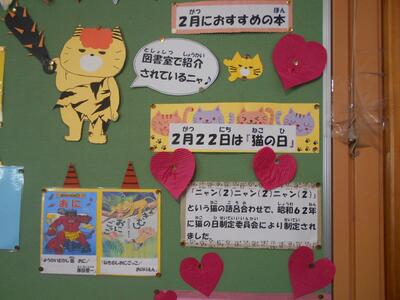 2月におすすめの本
図書室で紹介
されているニャ♪
2月22日は『猫の日』
「ニャン(2)ニャン(2)ニャン(2)」
という猫の語呂合わせで、昭和62年
に猫の日制定委員会により制定され
ました。
おに